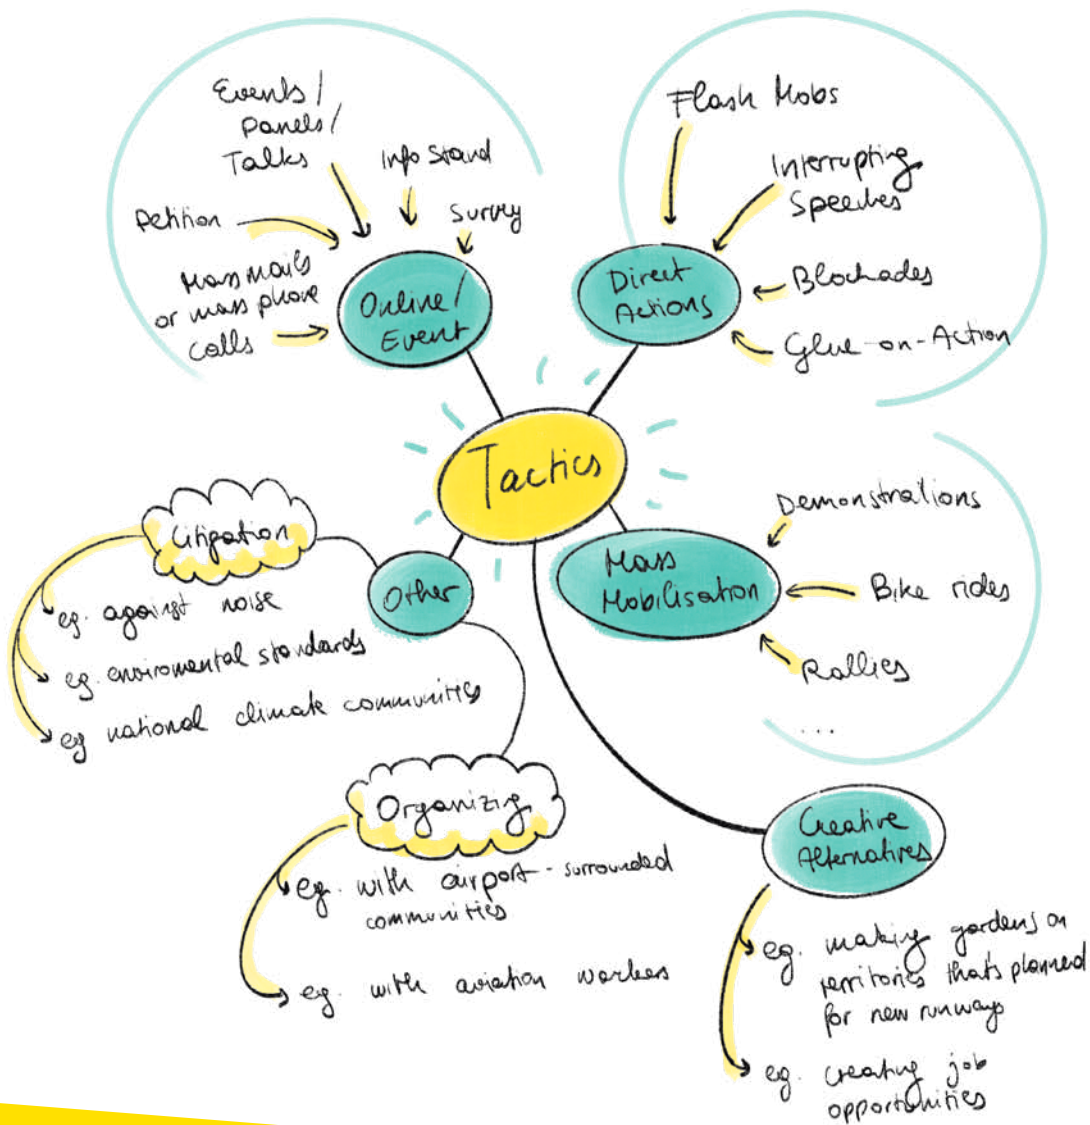 Events/
Panels/
Talks
Info Stand
Survey
Petition
Mass mails
or mass phone
calls
Online/
Event
Flash Mobs
Interrupting
Speeches
Direct
Actions
Blockades
Glue-on-Action
Tactics
Demonstrations
Mass
Mobilisation
Bike rides
Rallies
...
Litigation
Other
eg. against noise
eg. enviromental standards
eg national climate communities
Organizing
eg. with airport-surrounded
communities
eg. with aviation workers
Creative
Alternatives
eg. making gardens on
territories thats planned
for new runways
eg. creating job
opportunities